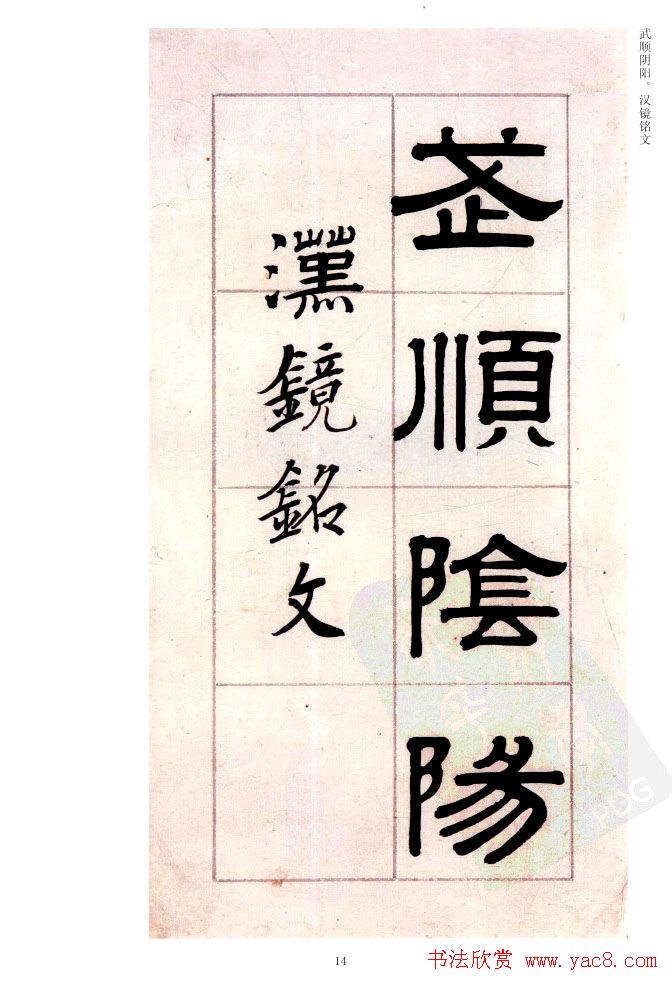 武顺阴阳。汉镜铭文
武順陰陽
漢鏡銘文
14
书法欣赏 www.yac8.com
PDG